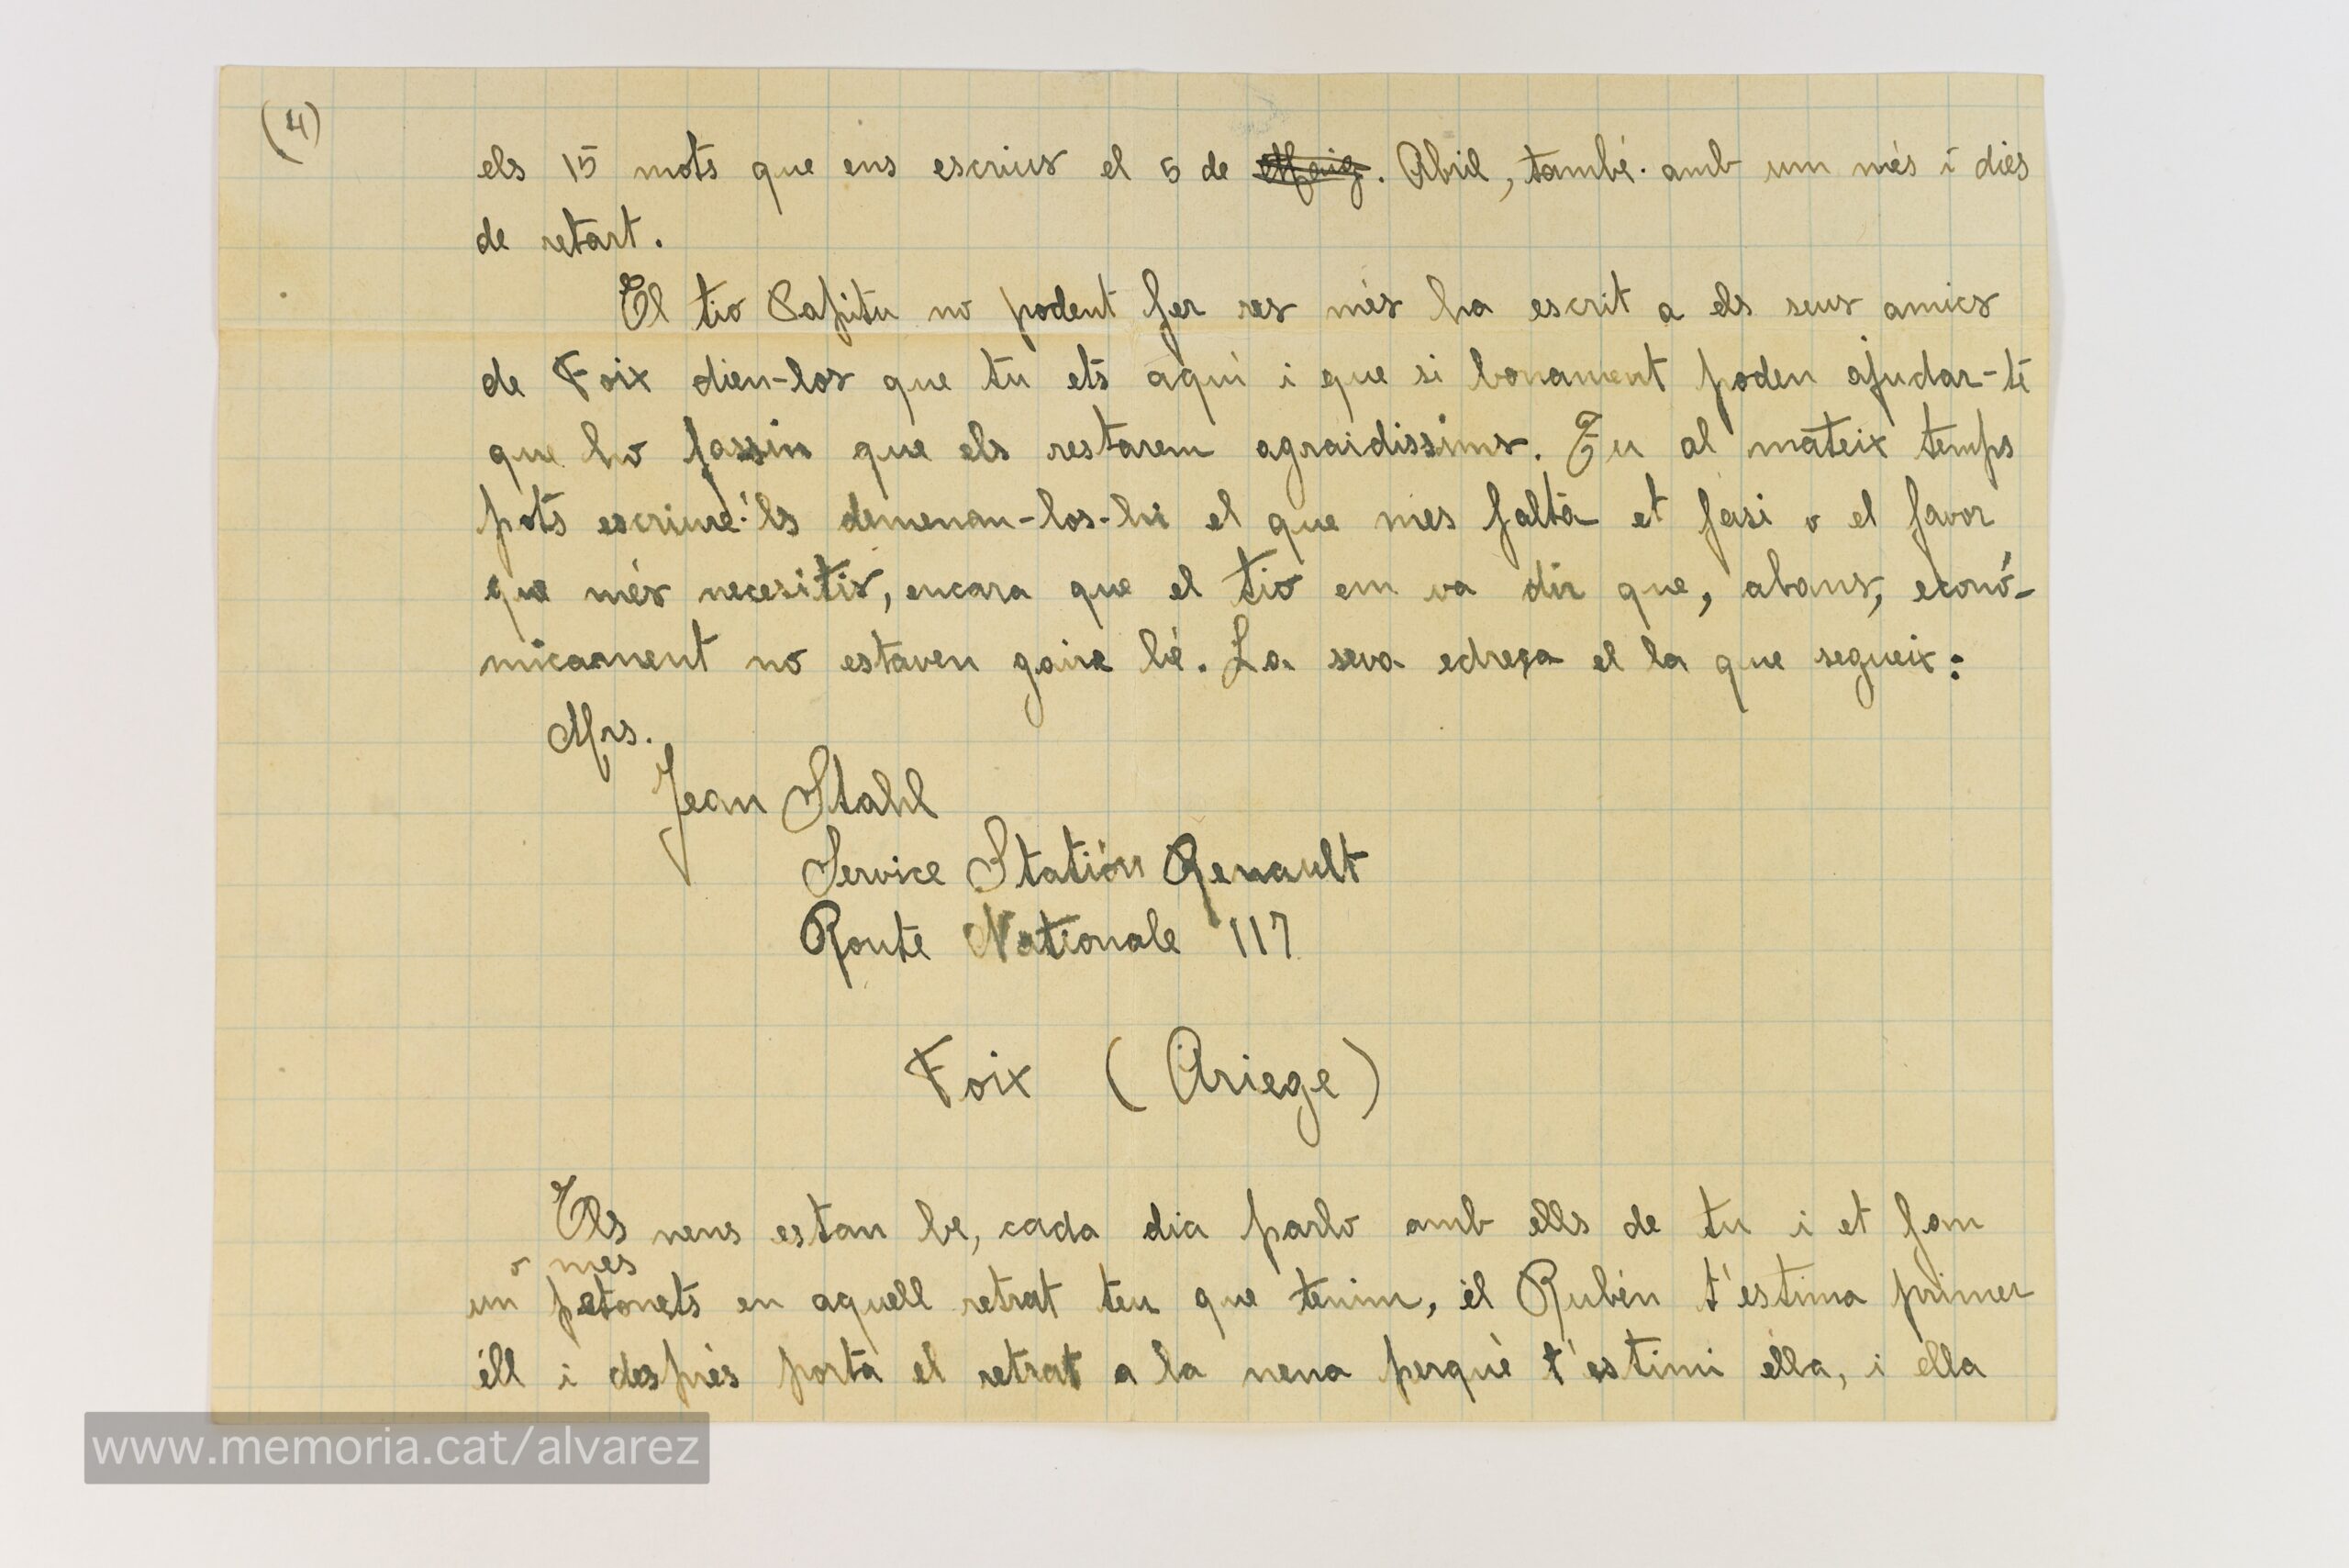 (4)
els 15 mots que ens escrius el 5 de Maig. Abril, també. amb un més i dies
de retart.
El tio Papitu no podent fer res més ha escrit a els seus amics
de Foix dien-los que tu ets aquí i que si bonament poden ajudar-te
que ho fassin que els restarem agraidissims. Tu al mateix temps
pots escriure'ls demenan-los-hi el que mes falta et fasi o el favor
que més necesitis, encara que el tio em va dir que, abans, econó-
micament no estaven gaire bé. La seva edreça el la que segueix:
Mrs.
Jean Stahl
Service Statión Renault
Route Nationale 117
Foix (Ariege)
Els nens estan be, cada dia parlo amb ells de tu i et fam
o mes
un petonets en aquell retrat teu que tenim, él Rubén t'estima primer
éll i després porta el retrat a la nena perquè t'estimi élla, i ella
www.memoria.cat/alvarez